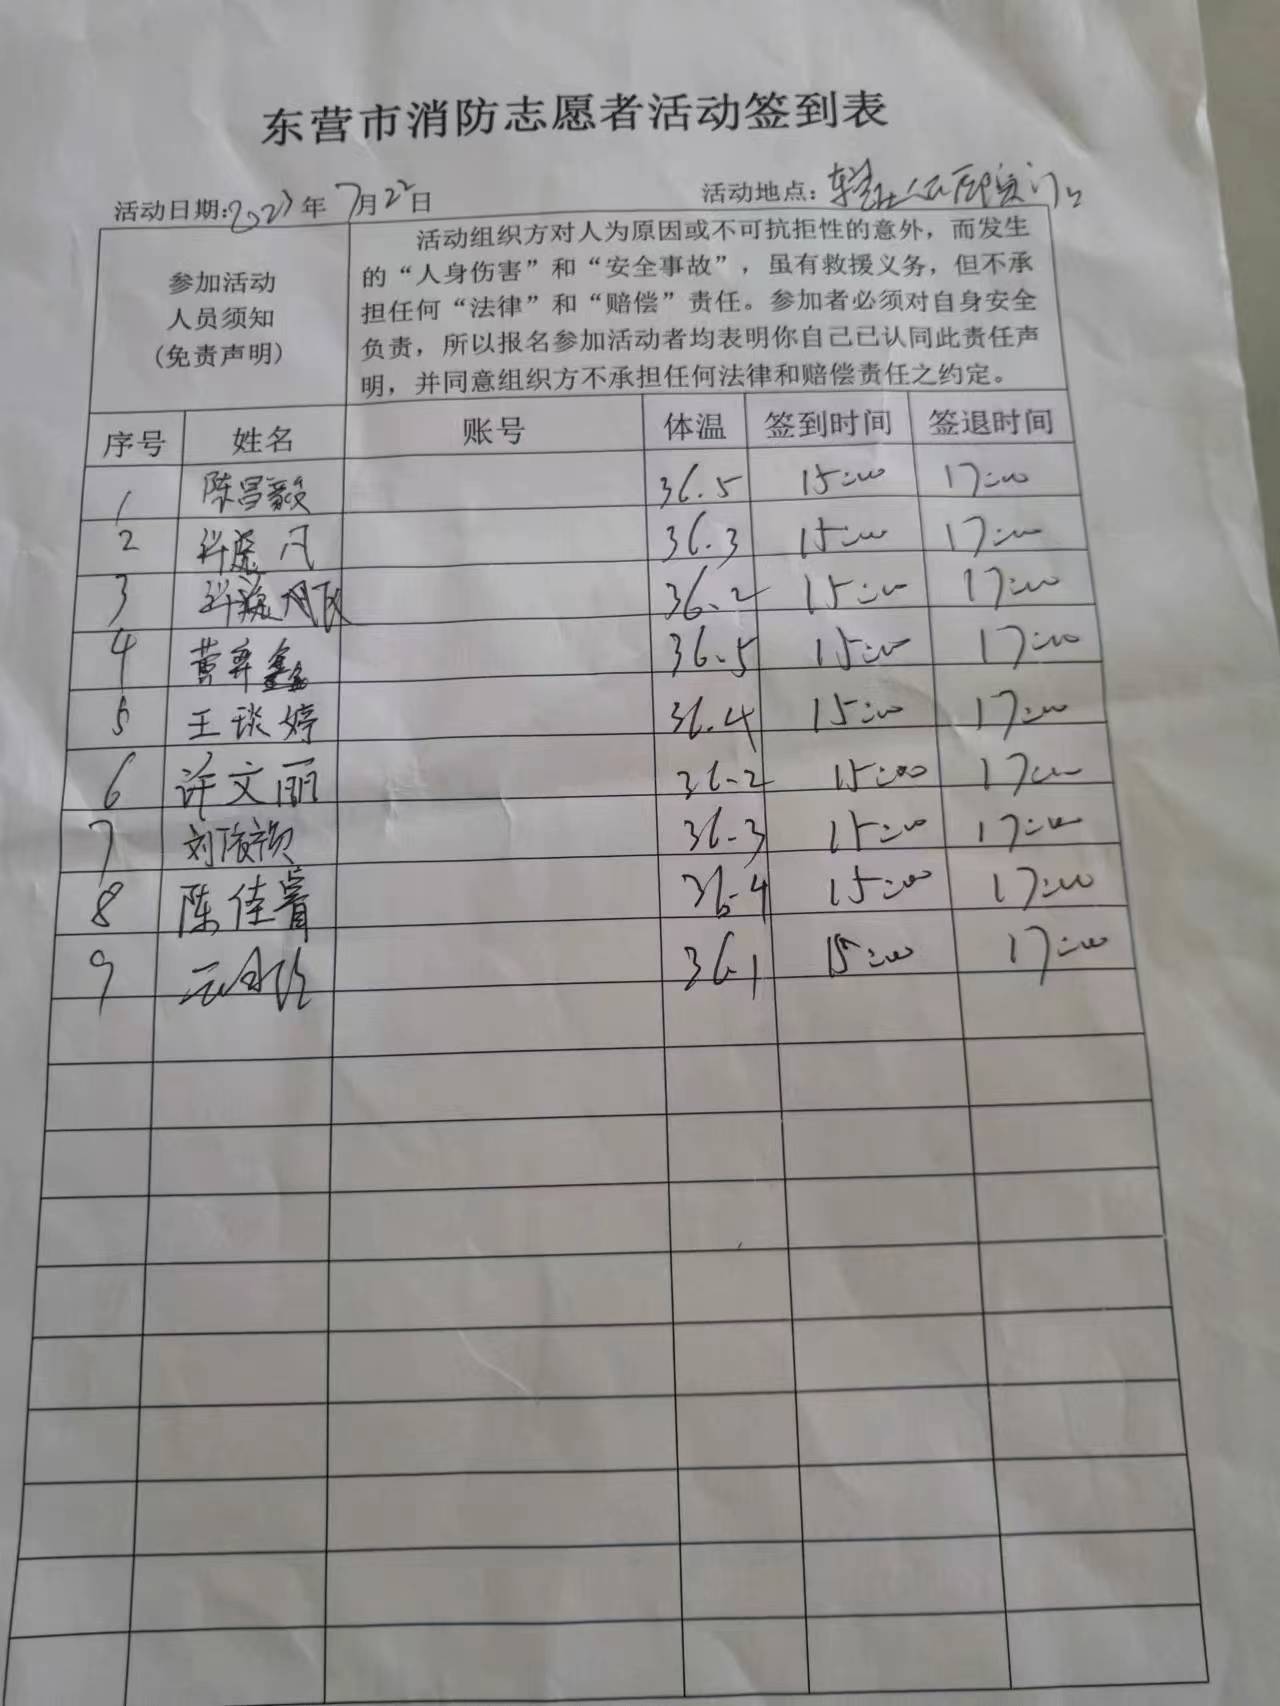 东营市消防志愿者活动签到表
活动日期:2023年7月22日 活动地点: 人民医院门口
参加活动
人员须知
(免责声明)
活动组织方对人为原因或不可抗拒性的意外，而发生
的“人身伤害”和“安全事故”，虽有救援义务，但不承
担任何“法律”和“赔偿”责任。参加者必须对自身安全
负责，所以报名参加活动者均表明你自己已认同此责任声
明，并同意组织方不承担任何法律和赔偿责任之约定。
序号 姓名 账号 体温 签到时间 签退时间
1 陈昌毅 36.5 15:00 17:00
2 36.3 15:00 17:00
3 36.2 15:00 17:00
4 36.5 15:00 17:00
5 王琰婷 36.4 15:00 17:00
6 许文丽 36.2 15:00 17:00
7 36.3 15:00 17:00
8 陈佳睿 36.4 15:00 17:00
9 36.1 15:00 17:00